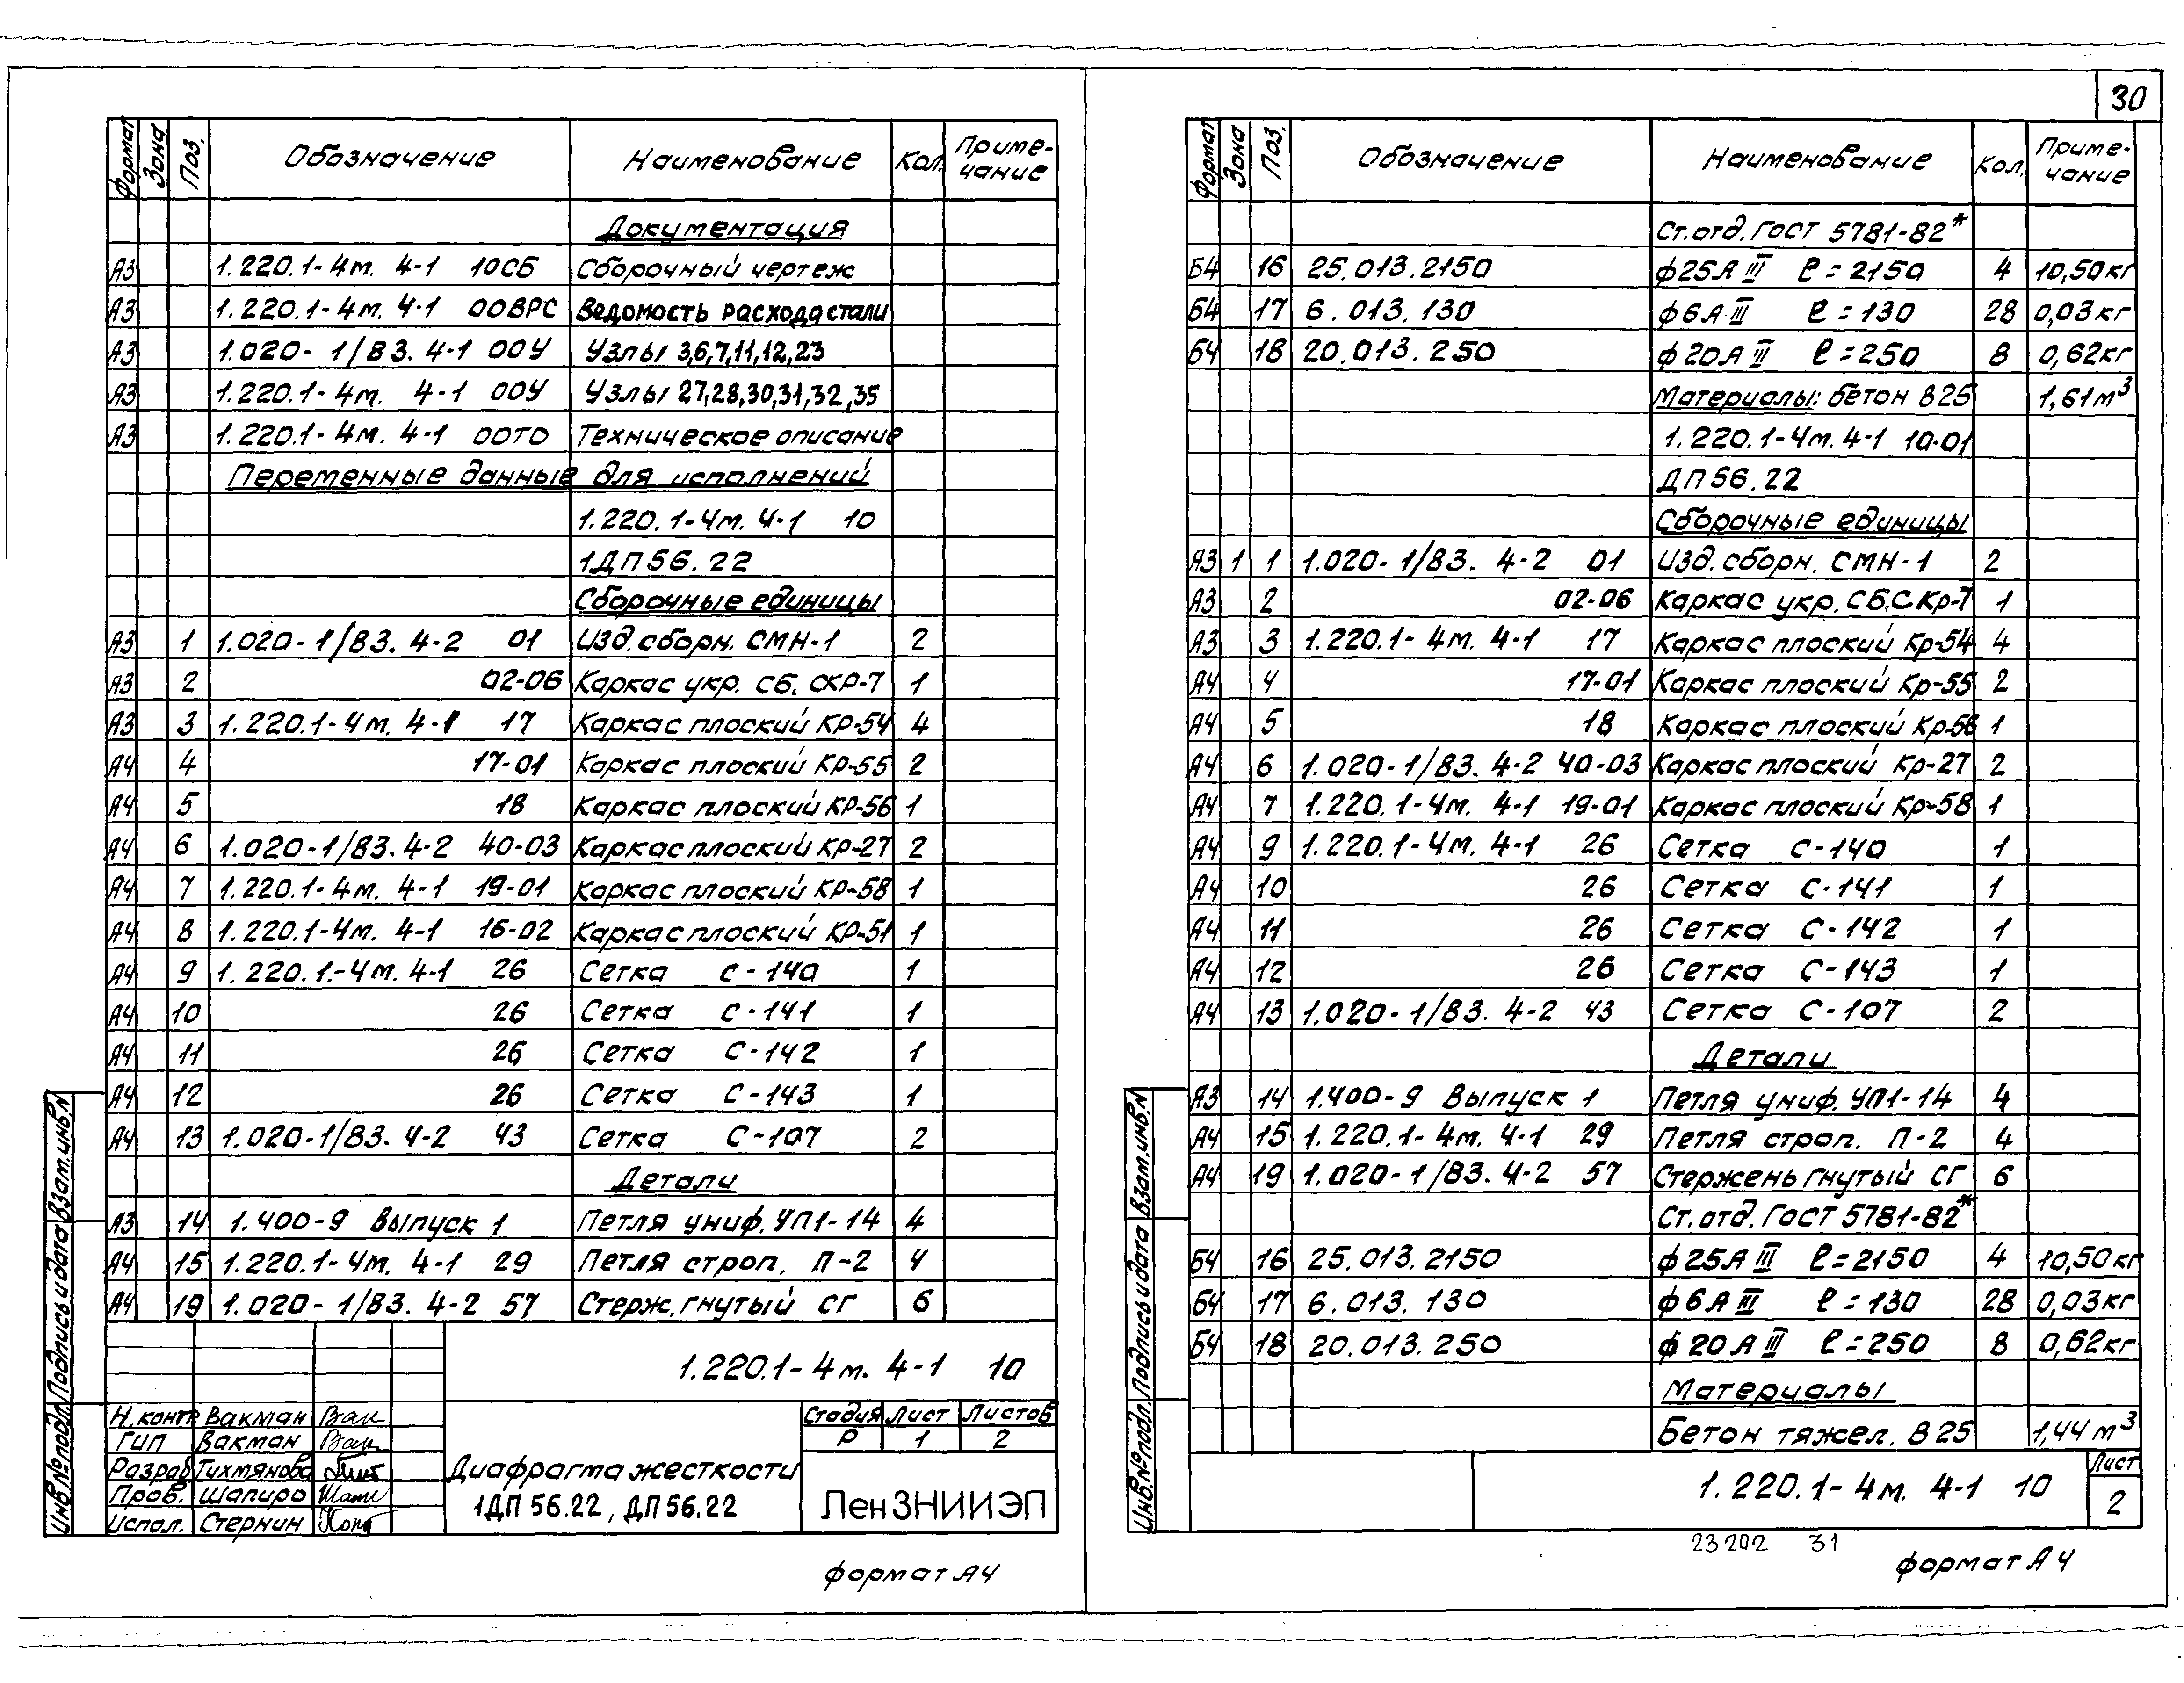 30
Формат Зона Поз. Обозначение Наименование Кол. Приме-
чание
Документация
А3 1.220.1-4м. 4-1 10СБ Сборочный чертеж
А3 1.220.1-4м. 4-1 00ВРС Ведомость расхода стали
А3 1.020-1/83. 4-1 00У Узлы 3,6,7,11,12,23
А3 1.220.1-4м. 4-1 00У Узлы 27,28,30,31,32,35
А3 1.220.1-4м. 4-1 00ТО Техническое описание
Переменные данные для исполнений
1.220.1-4м. 4-1 10
1ДП56.22
Сборочные единицы
А3 1 1.020-1/83. 4-2 01 Изд. сборн. СМН-1 2
А3 2 02-06 Каркас укр. сб. СКР-7 1
А3 3 1.220.1-4м. 4-1 17 Каркас плоский КР-54 4
А4 4 17-01 Каркас плоский КР-55 2
А4 5 18 Каркас плоский КР-56 1
А4 6 1.020-1/83. 4-2 40-03 Каркас плоский КР-27 2
А4 7 1.220.1-4м. 4-1 19-01 Каркас плоский КР-58 1
А4 8 1.220.1-4м. 4-1 16-02 Каркас плоский КР-51 1
А4 9 1.220.1-4м. 4-1 26 Сетка С-140 1
А4 10 26 Сетка С-141 1
А4 11 26 Сетка С-142 1
А4 12 26 Сетка С-143 1
А4 13 1.020-1/83. 4-2 43 Сетка С-107 2
Детали
А3 14 1.400-9 Выпуск 1 Петля униф. УП1-14 4
А4 15 1.220.1-4м. 4-1 29 Петля строп. П-2 4
А4 19 1.020-1/83. 4-2 57 Стерж. гнутый СГ 6
1.220.1-4м. 4-1 10
Н.контр Вакман
ГИП Вакман
Разраб Тихмянова
Пров. Шапиро
Испол. Стернин
Диафрагма жесткости
1ДП 56.22, ДП 56.22
Стадия Лист Листов
Р 1 2
ЛенЗНИИЭП
Инв.№ подл. Подпись и дата Взам. инв. №
формат А4
Формат Зона Поз. Обозначение Наименование Кол. Приме-
чание
Ст. отд. ГОСТ 5781-82*
Б4 16 25.013.2150 ф25А III ℓ=2150 4 10,50кг
Б4 17 6.013.130 ф6А III ℓ=130 28 0,03кг
Б4 18 20.013.250 ф20А III ℓ=250 8 0,62кг
Материалы: бетон В25 1,61м³
1.220.1-4м. 4-1 10-01
ДП56.22
Сборочные единицы
А3 1 1 1.020-1/83. 4-2 01 Изд. сборн. СМН-1 2
А3 2 02-06 Каркас укр. сб. СКр-7 1
А3 3 1.220.1-4м. 4-1 17 Каркас плоский Кр-54 4
А4 4 17-01 Каркас плоский Кр-55 2
А4 5 18 Каркас плоский Кр-56 1
А4 6 1.020-1/83. 4-2 40-03 Каркас плоский Кр-27 2
А4 7 1.220.1-4м. 4-1 19-01 Каркас плоский Кр-58 1
А4 9 1.220.1-4м. 4-1 26 Сетка С-140 1
А4 10 26 Сетка С-141 1
А4 11 26 Сетка С-142 1
А4 12 26 Сетка С-143 1
А4 13 1.020-1/83. 4-2 43 Сетка С-107 2
Детали
А3 14 1.400-9 Выпуск 1 Петля униф. УП1-14 4
А4 15 1.220.1-4м. 4-1 29 Петля строп. П-2 4
А4 19 1.020-1/83. 4-2 57 Стержень гнутый СГ 6
Ст. отд. ГОСТ 5781-82*
Б4 16 25.013.2150 ф25А III ℓ=2150 4 10,50кг
Б4 17 6.013.130 ф6А III ℓ=130 28 0,03кг
Б4 18 20.013.250 ф20А III ℓ=250 8 0,62кг
Материалы
Бетон тяжел. В25 1,44м³
1.220.1-4м. 4-1 10
Лист
2
Инв.№ подл. Подпись и дата Взам. инв. №
23202 31
формат А4